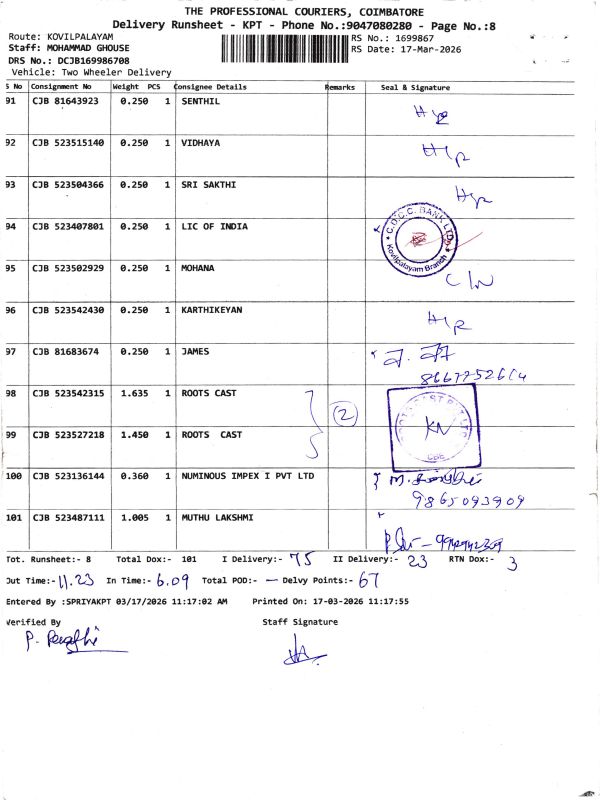 THE PROFESSIONAL COURIERS, COIMBATORE
Delivery Runsheet - KPT - Phone No.:9047080280 - Page No.:8
Route: KOVILPALAYAM
RS No.: 1699867
Staff: MOHAMMAD GHOUSE
RS Date: 17-Mar-2026
DRS No.: DCJB169986708
Vehicle: Two Wheeler Delivery
S No Consignment No Weight PCS Consignee Details Remarks Seal & Signature
91 CJB 81643923 0.250 1 SENTHIL
92 CJB 523515140 0.250 1 VIDHAYA
93 CJB 523504366 0.250 1 SRI SAKTHI
94 CJB 523407801 0.250 1 LIC OF INDIA
C.D.C.C. BANK LTD.
Kovilpalayam Branch
95 CJB 523502929 0.250 1 MOHANA
96 CJB 523542430 0.250 1 KARTHIKEYAN
97 CJB 81683674 0.250 1 JAMES
98 CJB 523542315 1.635 1 ROOTS CAST
2
99 CJB 523527218 1.450 1 ROOTS CAST
CBE
100 CJB 523136144 0.360 1 NUMINOUS IMPEX I PVT LTD
9865093909
101 CJB 523487111 1.005 1 MUTHU LAKSHMI
Tot. Runsheet:- 8 Total Dox:- 101 I Delivery:- 75 II Delivery:- 23 RTN Dox:- 3
Out Time:- 11.23 In Time:- 6.09 Total POD:- — Delvy Points:- 67
Entered By :SPRIYAKPT 03/17/2026 11:17:02 AM Printed On: 17-03-2026 11:17:55
Verified By Staff Signature